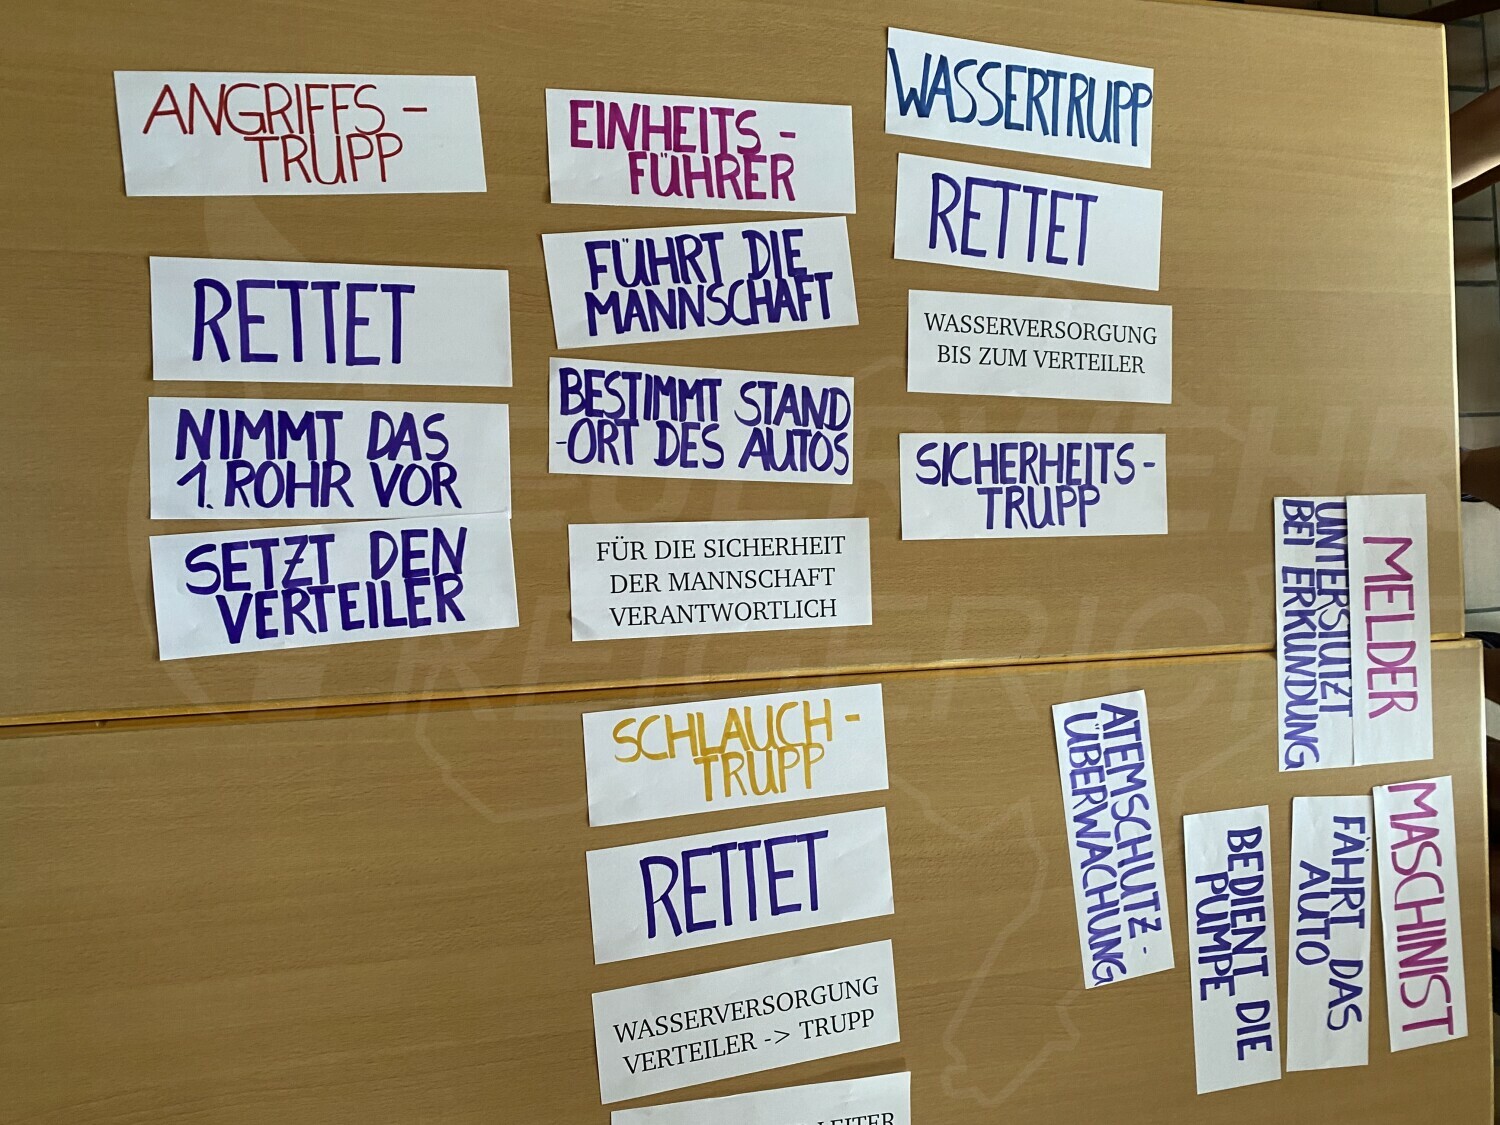 ANGRIFFS-
TRUPP
RETTET
NIMMT DAS
1. ROHR VOR
SETZT DEN
VERTEILER
EINHEITS-
FÜHRER
FÜHRT DIE
MANNSCHAFT
BESTIMMT STAND
-ORT DES AUTOS
FÜR DIE SICHERHEIT
DER MANNSCHAFT
VERANTWORTLICH
WASSERTRUPP
RETTET
WASSERVERSORGUNG
BIS ZUM VERTEILER
SICHERHEITS-
TRUPP
SCHLAUCH-
TRUPP
RETTET
WASSERVERSORGUNG
VERTEILER -> TRUPP
MELDER
UNTERSTÜTZT
BEI ERKUNDUNG
ATEMSCHUTZ-
ÜBERWACHUNG
MASCHINIST
FÄHRT DAS
AUTO
BEDIENT DIE
PUMPE